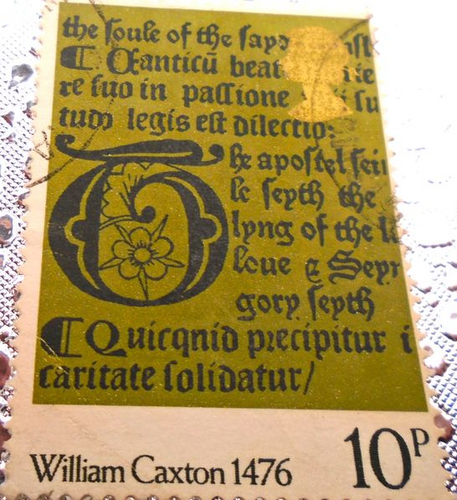 the soule of the sayd
¶ Canticū beat
re suo in passione su
tudo legis est dilectio:
The apostel sei
le seyth the
lyng of the l
loue & Seyn
gory seyth
¶ Quicqnid precipitur i
caritate solidatur/
William Caxton 1476 10P